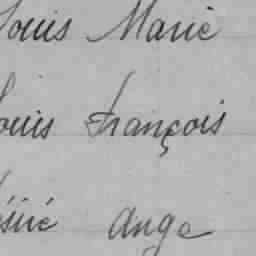 Louis Marie
Louis François
Désiré Ange